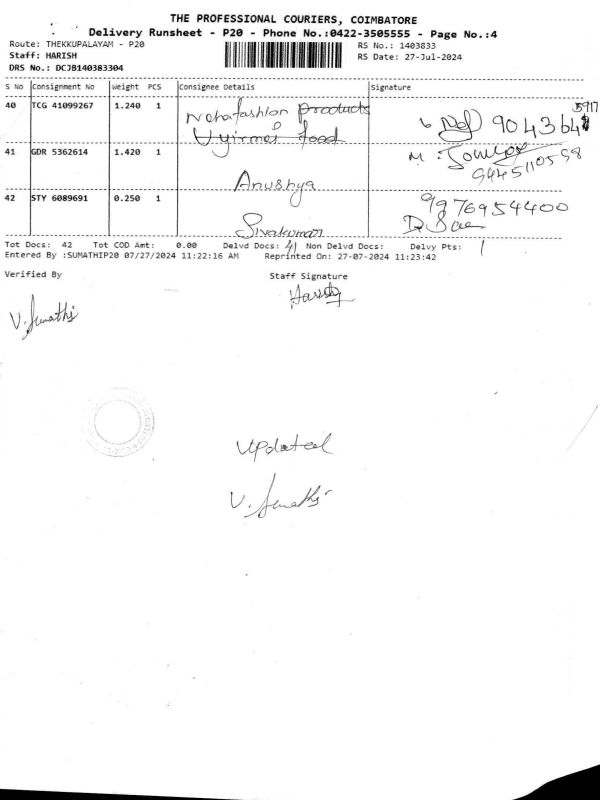 THE PROFESSIONAL COURIERS, COIMBATORE
Delivery Runsheet - P20 - Phone No.:0422-3505555 - Page No.:4
Route: THEKKUPALAYAM - P20 RS No.: 1403833
Staff: HARISH RS Date: 27-Jul-2024
DRS No.: DCJB140383304
S No Consignment No Weight PCS Consignee Details Signature
40 TCG 41099267 1.240 1 products
food 904364
41 GDR 5362614 1.420 1 9445110598
Anushya
42 STY 6089691 0.250 1 9976954400
Sivakumar
Tot Docs: 42 Tot COD Amt: 0.00 Delvd Docs: 41 Non Delvd Docs: Delvy Pts: 1
Entered By :SUMATHIP20 07/27/2024 11:22:16 AM Reprinted On: 27-07-2024 11:23:42
Verified By Staff Signature
Harish
V. Sumathi
Updated
V. Sumathi